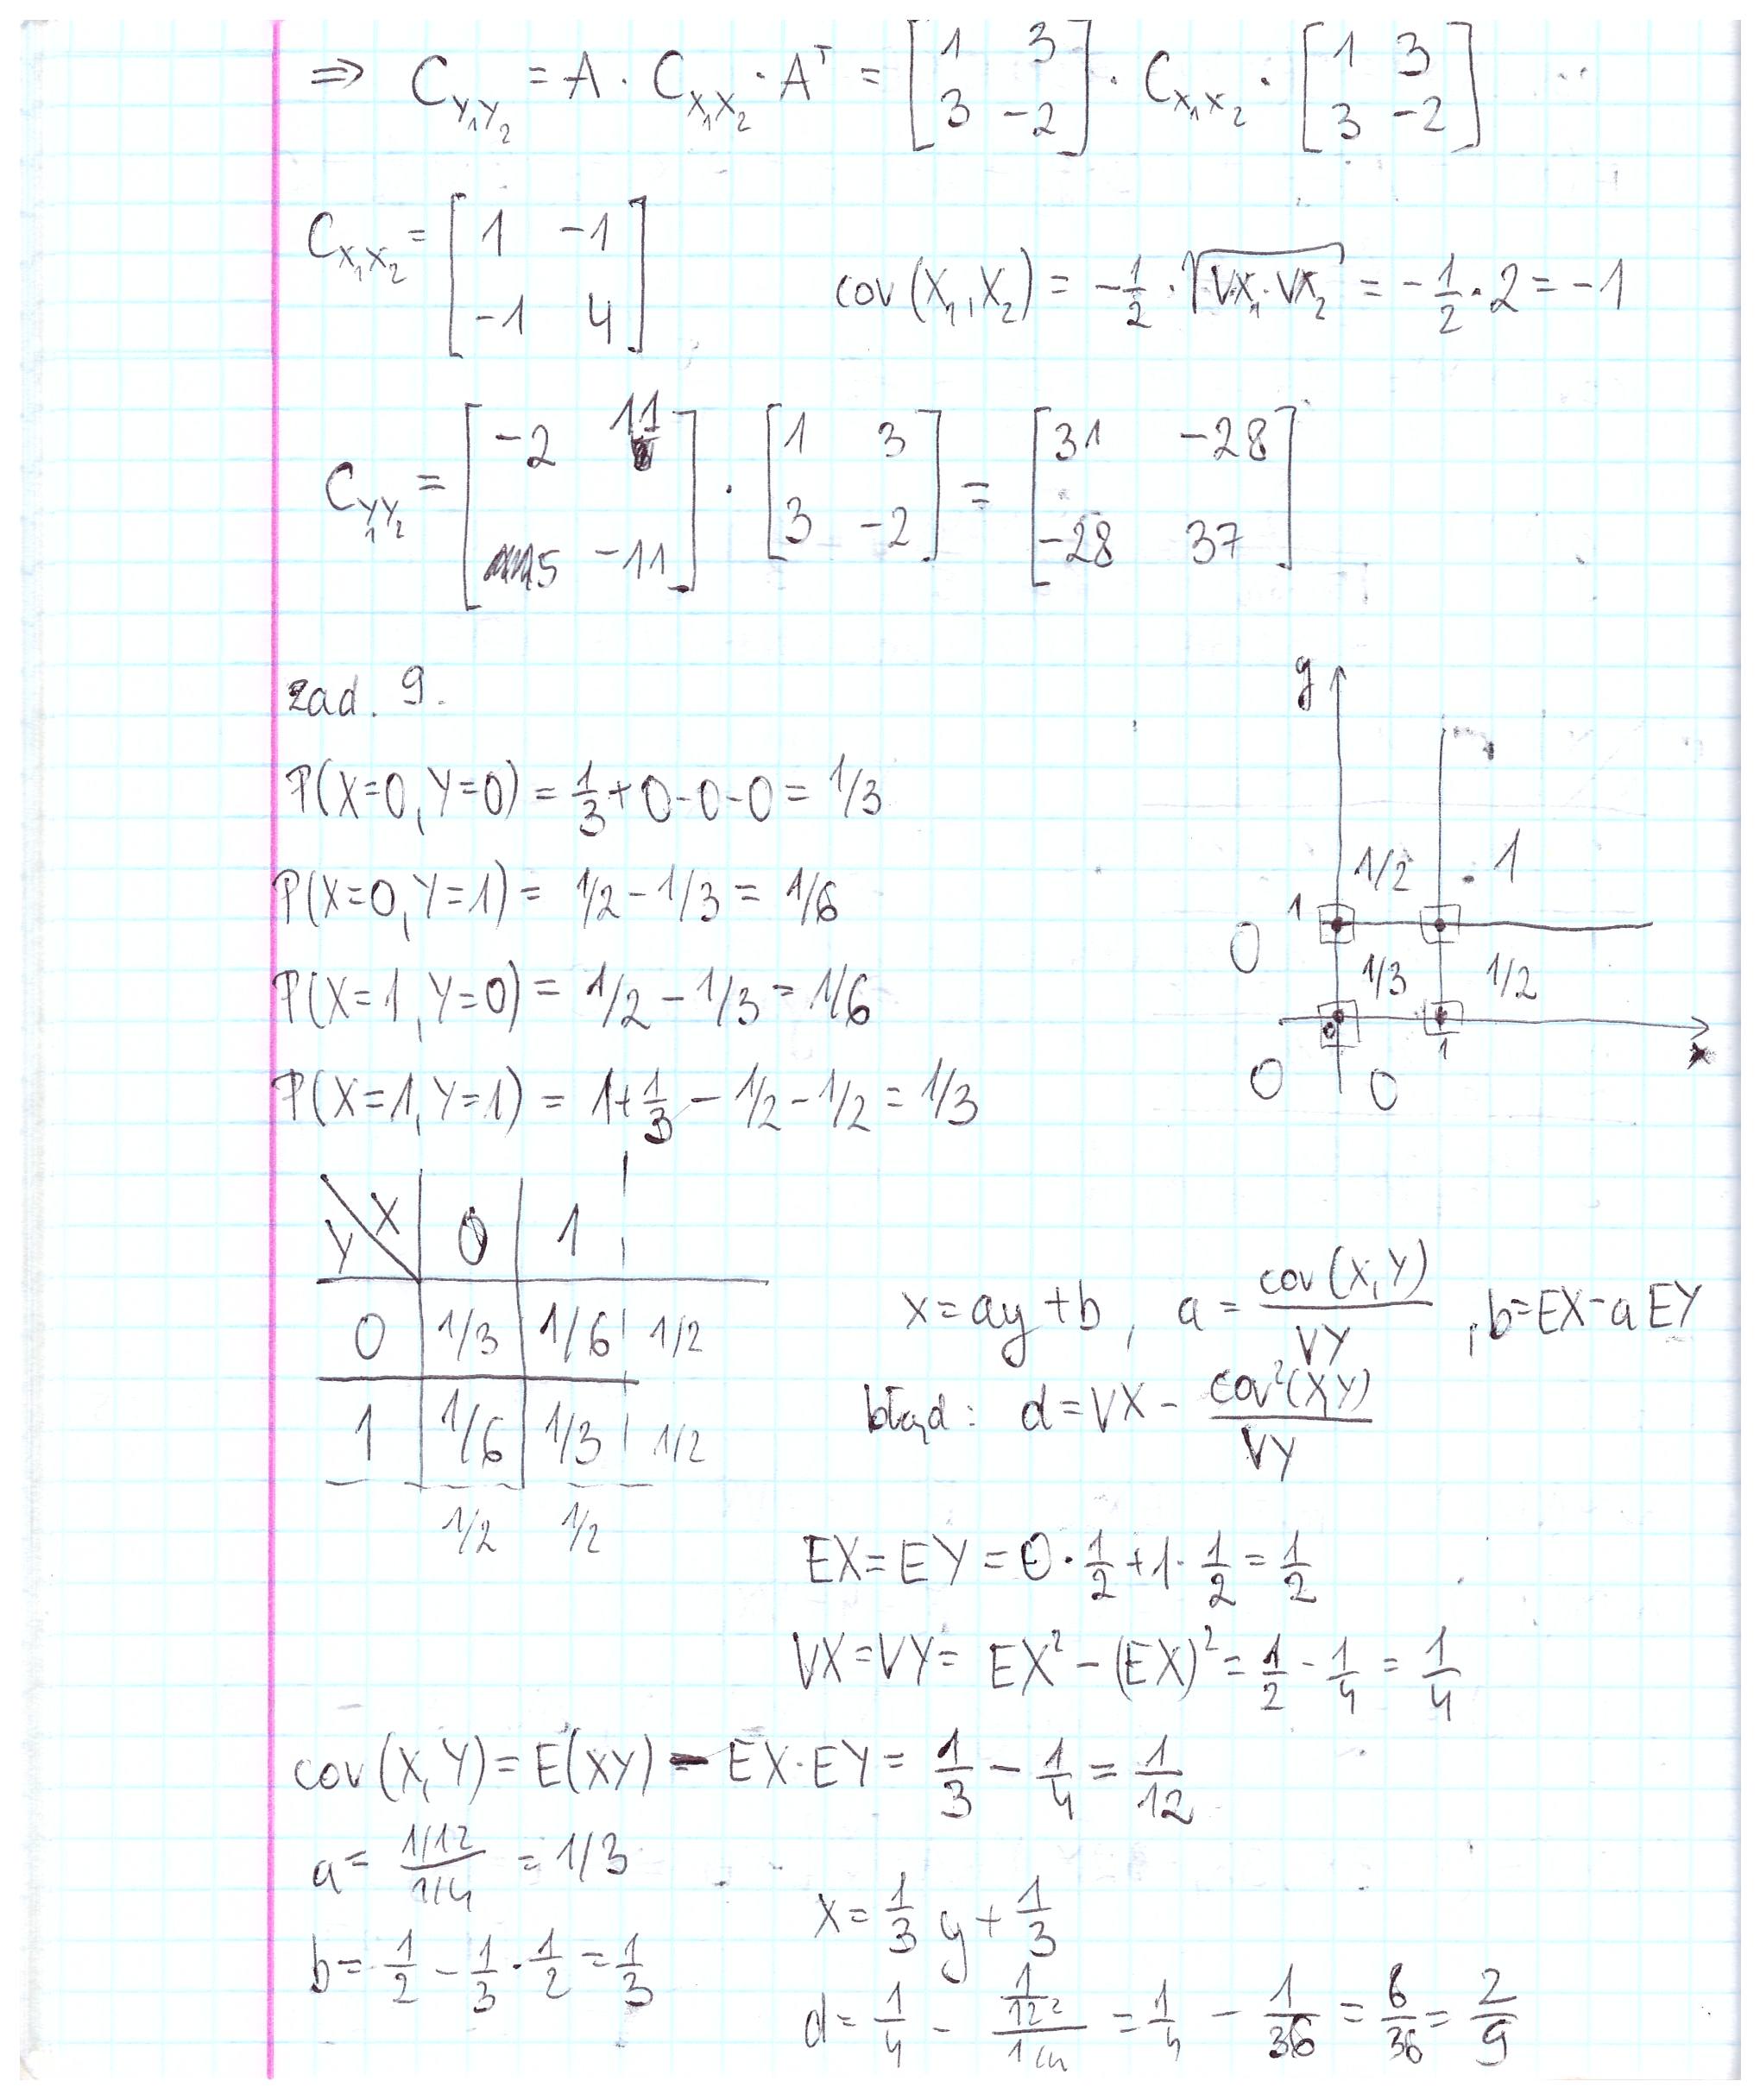 ⇒ C_{Y₁Y₂} = A · C_{X₁X₂} · Aᵀ = [1 3; 3 -2] · C_{X₁X₂} · [1 3; 3 -2]
C_{X₁X₂} = [1 -1; -1 4]
cov(X₁,X₂) = -1/2 · √(VX₁·VX₂) = -1/2 · 2 = -1
C_{Y₁Y₂} = [-2 11; 5 -11] · [1 3; 3 -2] = [31 -28; -28 37]
zad. 9.
P(X=0,Y=0) = 1/3 + 0-0-0 = 1/3
P(X=0,Y=1) = 1/2 - 1/3 = 1/6
P(X=1,Y=0) = 1/2 - 1/3 = 1/6
P(X=1,Y=1) = 1+1/3 - 1/2 - 1/2 = 1/3
y
1/2 1
1
0 1/3 1/2
0 1 x
0 0
Y X 0 1
0 1/3 1/6 1/2
1 1/6 1/3 1/2
1/2 1/2
x = ay + b, a = cov(X,Y)/VY, b=EX-aEY
błąd: d = VX - cov²(X,Y)/VY
EX = EY = 0·1/2 + 1·1/2 = 1/2
VX = VY = EX² - (EX)² = 1/2 - 1/4 = 1/4
cov(X,Y) = E(XY) - EX·EY = 1/3 - 1/4 = 1/12
a = (1/12)/(1/4) = 1/3
b = 1/2 - 1/3 · 1/2 = 1/3
x = 1/3 y + 1/3
d = 1/4 - (1/12²)/(1/4) = 1/4 - 1/36 = 8/36 = 2/9